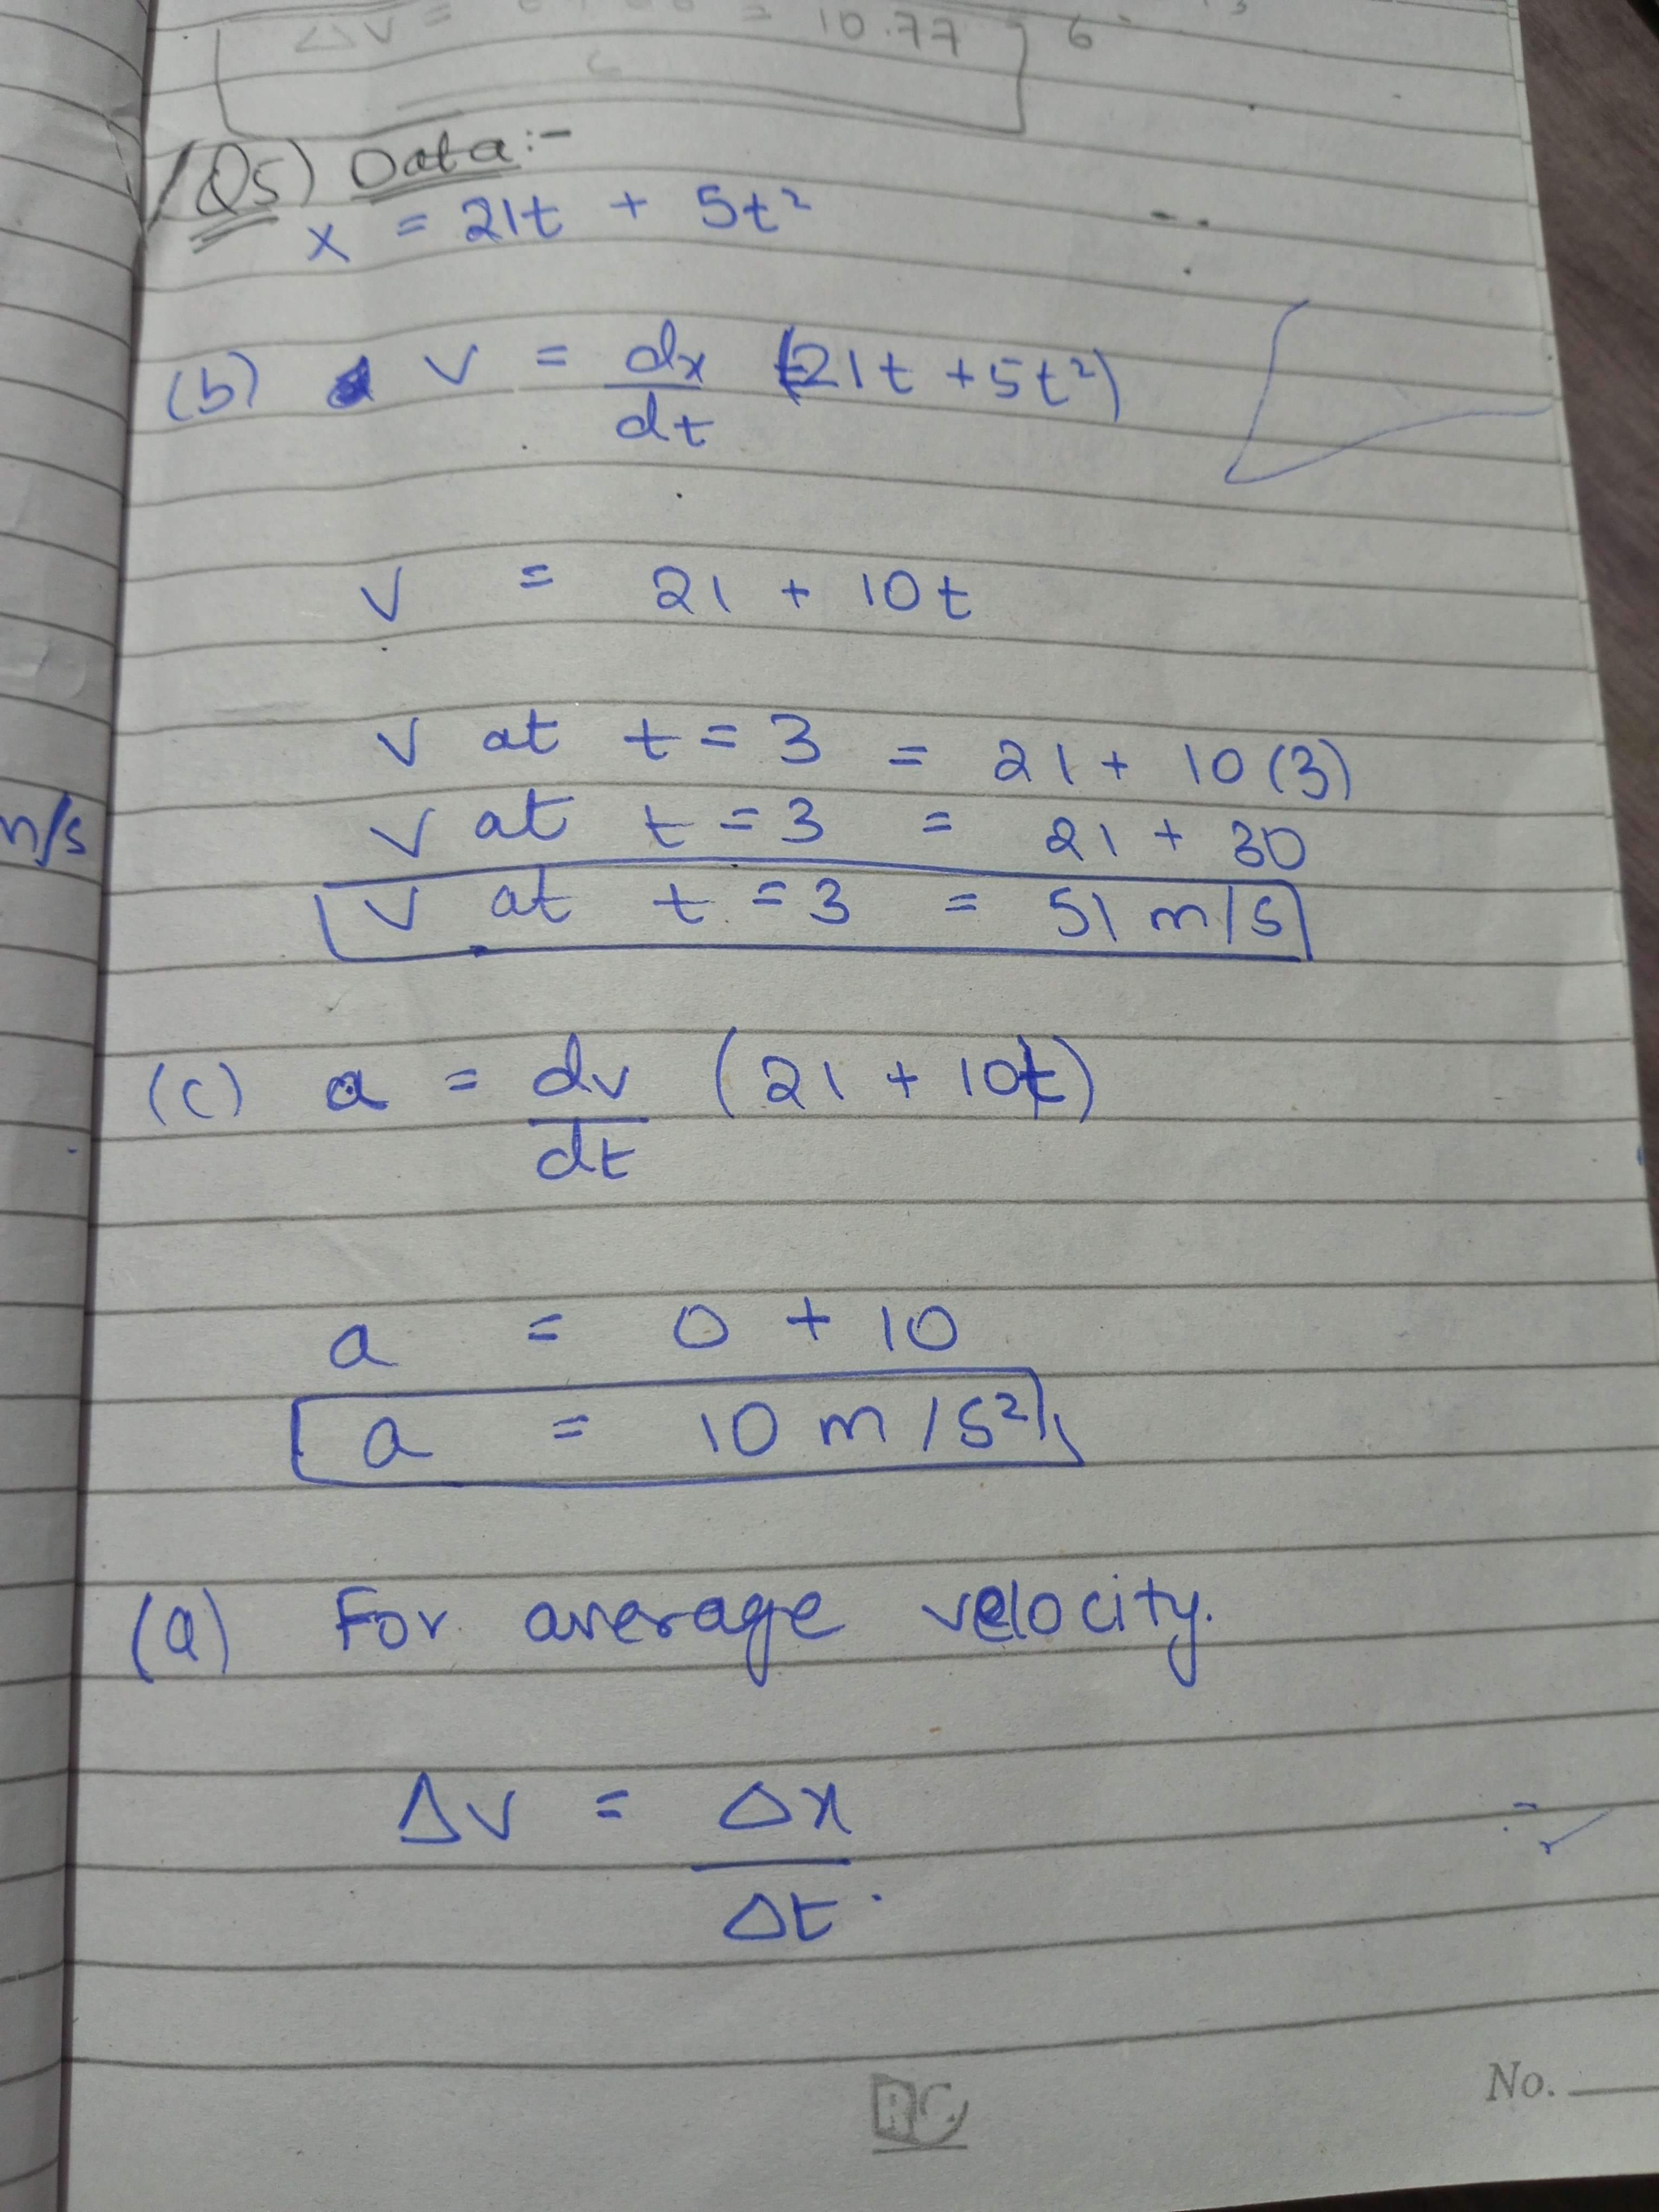 ΔV = = 10.77 6
(Q5) Data:-
x = 21t + 5t²
(b) v = dx/dt (21t + 5t²)
v = 21 + 10t
v at t = 3 = 21 + 10(3)
n/s
v at t = 3 = 21 + 30
v at t = 3 = 51 m/s
(c) a = dv/dt (21 + 10t)
a = 0 + 10
a = 10 m/s²
(a) For average velocity.
Δv = Δx/Δt
No.
RC